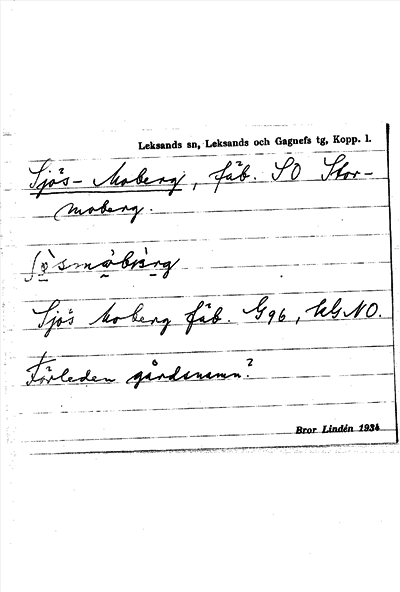 Leksands sn, Leksands och Gagnefs tg, Kopp. l.
Sjös-Moberg, fäb. SO Stor-
moberg.
Sjös Moberg fäb. G96, NO.
Förleden gårdsnamn?
Bror Lindén 1934